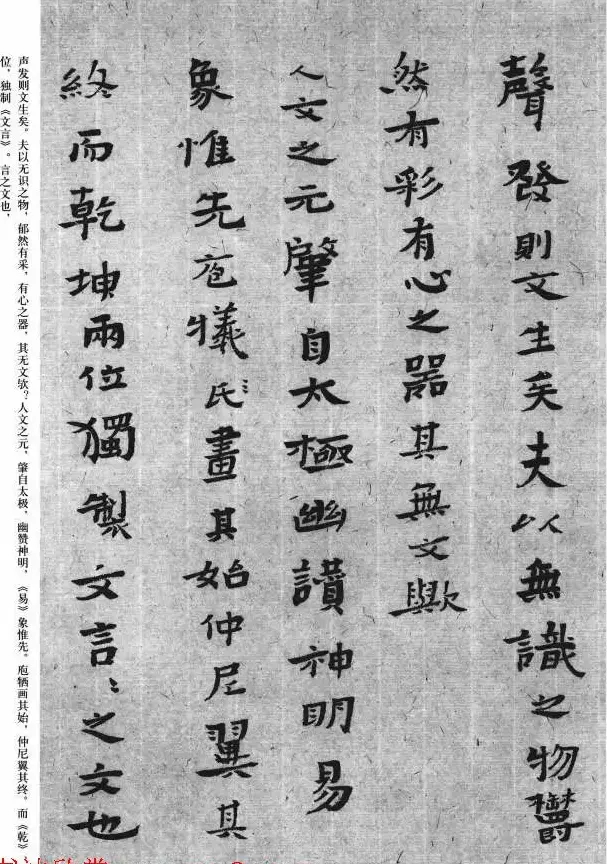 聲發則文生矣夫以無識之物鬱
然有彩有心之器其無文歟
人文之元肇自太極幽讚神明易
象惟先庖犧氏畫其始仲尼翼其
終而乾坤兩位獨製文言〻之文也
声发则文生矣。夫以无识之物，郁然有采，有心之器，其无文欤？人文之元，肇自太极，幽赞神明，《易》象惟先。庖牺画其始，仲尼翼其终。而《乾》
位，独制《文言》。言之文也，